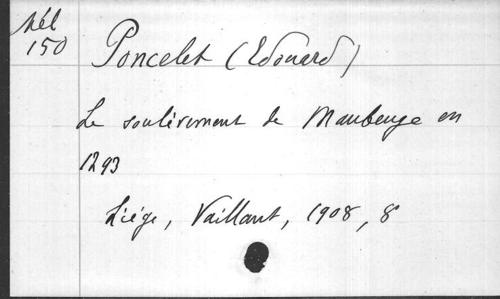 Mél
150
Poncelet (Edouard)
Le soulèvement de Maubeuge en
1293
Liége, Vaillant, 1908, 8°